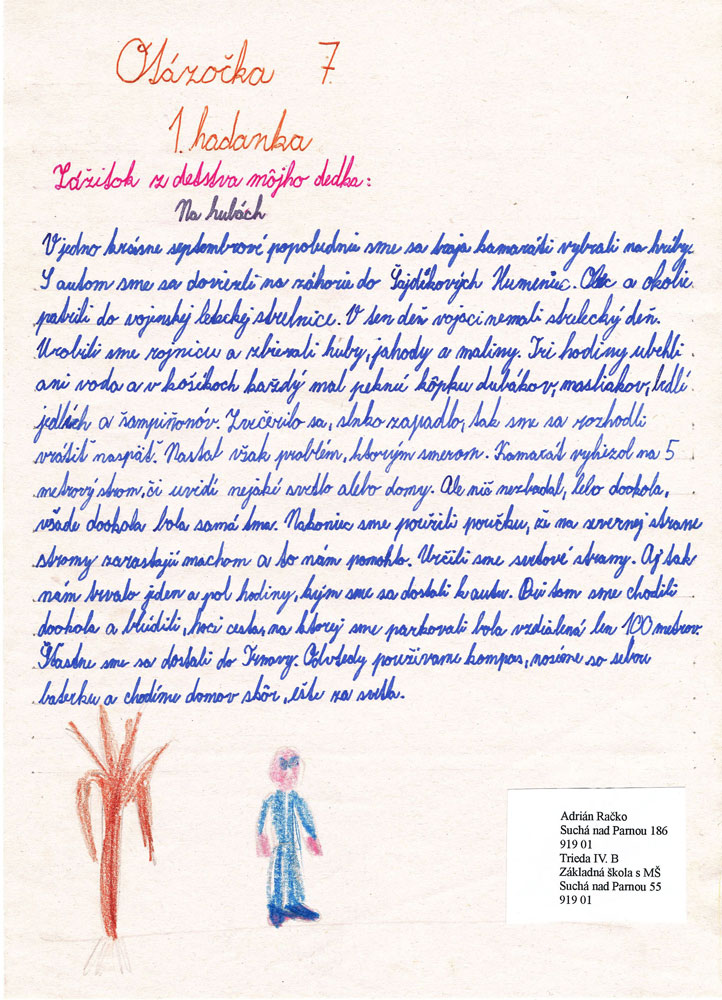 Otázočka 7
1. hadanka
Zážitok z detstva môjho dedka:
Na hubách
V jedno krásne septembrové popoludnie sme sa traja kamaráti vybrali na hríby.
S autom sme sa doviezli na záhorie do Šajdíkových Humeniec. Obec a okolie
patrili do vojenskej leteckej strelnice. V ten deň vojaci nemali strelecký deň.
Urobili sme rojnicu a zbierali huby, jahody a maliny. Tri hodiny ubehli
ani voda a v košíkoch každý mal peknú kôpku dubákov, masliakov, bedlí
jedlých a šampiňonóv. Zvečerilo sa, slnko zapadlo, tak sme sa rozhodli
vrátiť naspäť. Nastal však problém, ktorým smerom. Kamarát vyliezol na 5
metrový strom, či uvidí nejaké svetlo alebo domy. Ale nič nezbadal, lebo dookola,
všade dookola bola samá tma. Nakoniec sme použili poučku, že na severnej strane
stromy zarastajú machom a to nám pomohlo. Určili sme svetové strany. Aj tak
nám trvalo jeden a pol hodiny, kým sme sa dostali k autu. Pri tom sme chodili
dookola a blúdili, hoci cesta, na ktorej sme parkovali bola vzdialená len 100 metrov.
Šťastne sme sa dostali do Trnavy. Odvtedy používame kompas, nosíme so sebou
baterku a chodíme domov skôr, ešte za svetla.
Adrián Račko
Suchá nad Parnou 186
919 01
Trieda IV. B
Základná škola s MŠ
Suchá nad Parnou 55
919 01